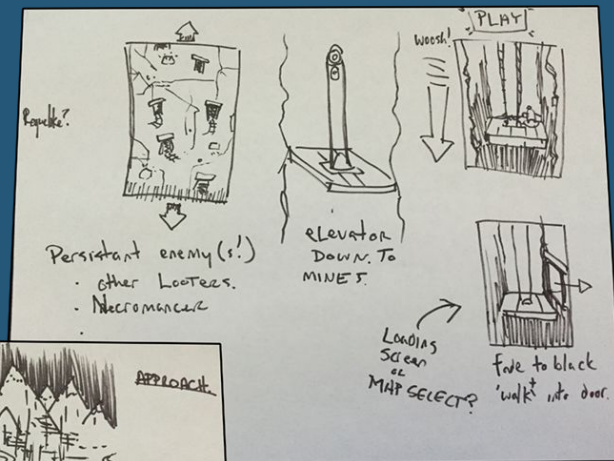 PLAY
Woosh!
Roguelike?
Persistant enemy(s!)
· other Looters.
· Necromancer
·
elevator
DOWN. To
MINES.
Loading
Screen
or
MAP SELECT?
fade to black
'walk' into door.
APPROACH.